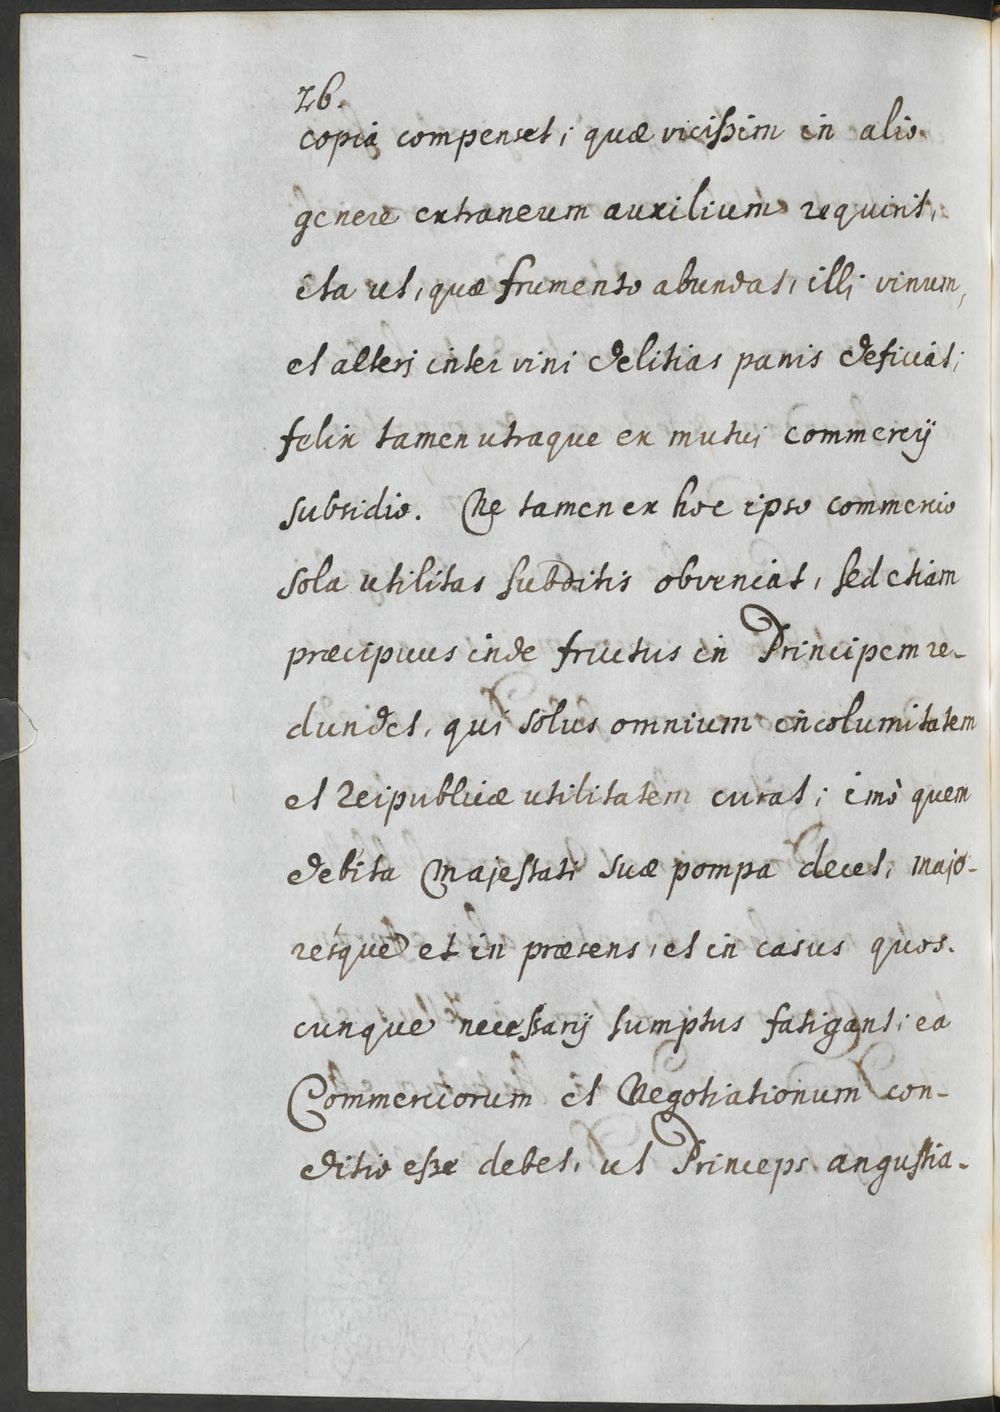 26.
copiâ compenset; quæ vicißim in alio
genere extraneum auxilium requirit,
ita ut, quæ frumento abundat, illi vinum,
et alteri inter vini delitias panis deficiat;
felix tamen utraque ex mutui commercij
subsidio. Ne tamen ex hoc ipso commercio
sola utilitas subditis obveniat, sed etiam
præcipuus inde fructus in Principem re-
dundet, qui solus omnium incolumitatem
et Reipublicæ utilitatem curat; imò quem
debita Majestati suæ pompa decet, majo-
resque et in præsens, et in casus quos-
cunque necessarij sumptus fatigant; ea
Commerciorum et Negotiationum con-
ditio eße debet, ut Princeps angustia-